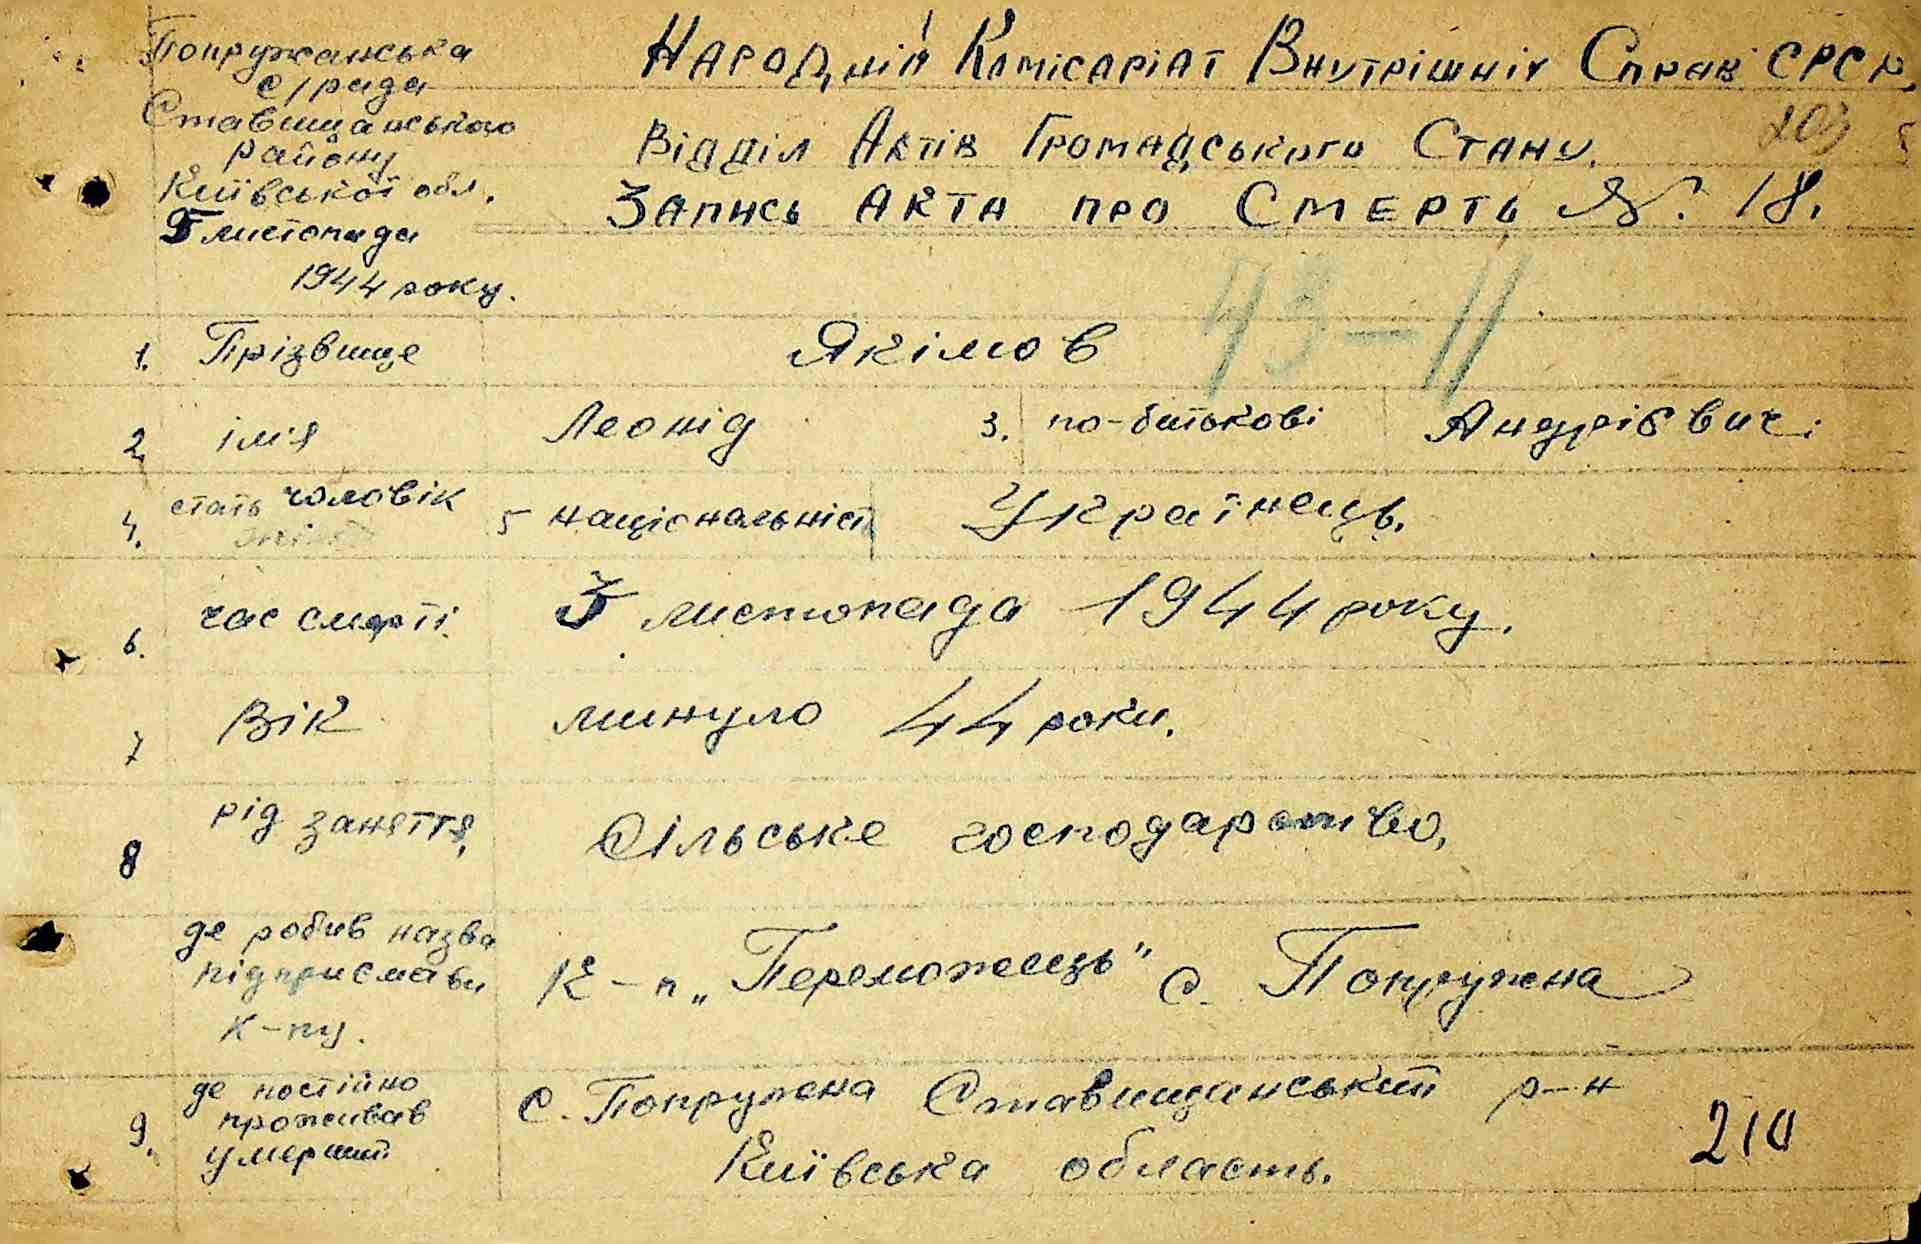 Попружанська
с/рада
Ставищанського
району
Київської обл.
5 листопада
1944 року.
Народній Комісаріат Внутрішніх Справ СРСР.
203
Відділ Актів Громадського Стану.
Запись акта про Смерть №. 18.
43-11
1. Прізвище Якімов
2. ім'я Леонід 3. по-батькові Андрієвич.
4. стать чоловік 5 національніст Українець.
6. час смерті. 3 листопада 1944 року.
7 Вік минуло 44 роки.
8 рід заняття, Сільське господарство,
де робив назва
підприємави
к-пу.
К-п „Переможець" с. Попружна
9. де постійно
проживав
умерший
с. Попружна Ставищанський р-н
Київська область.
210